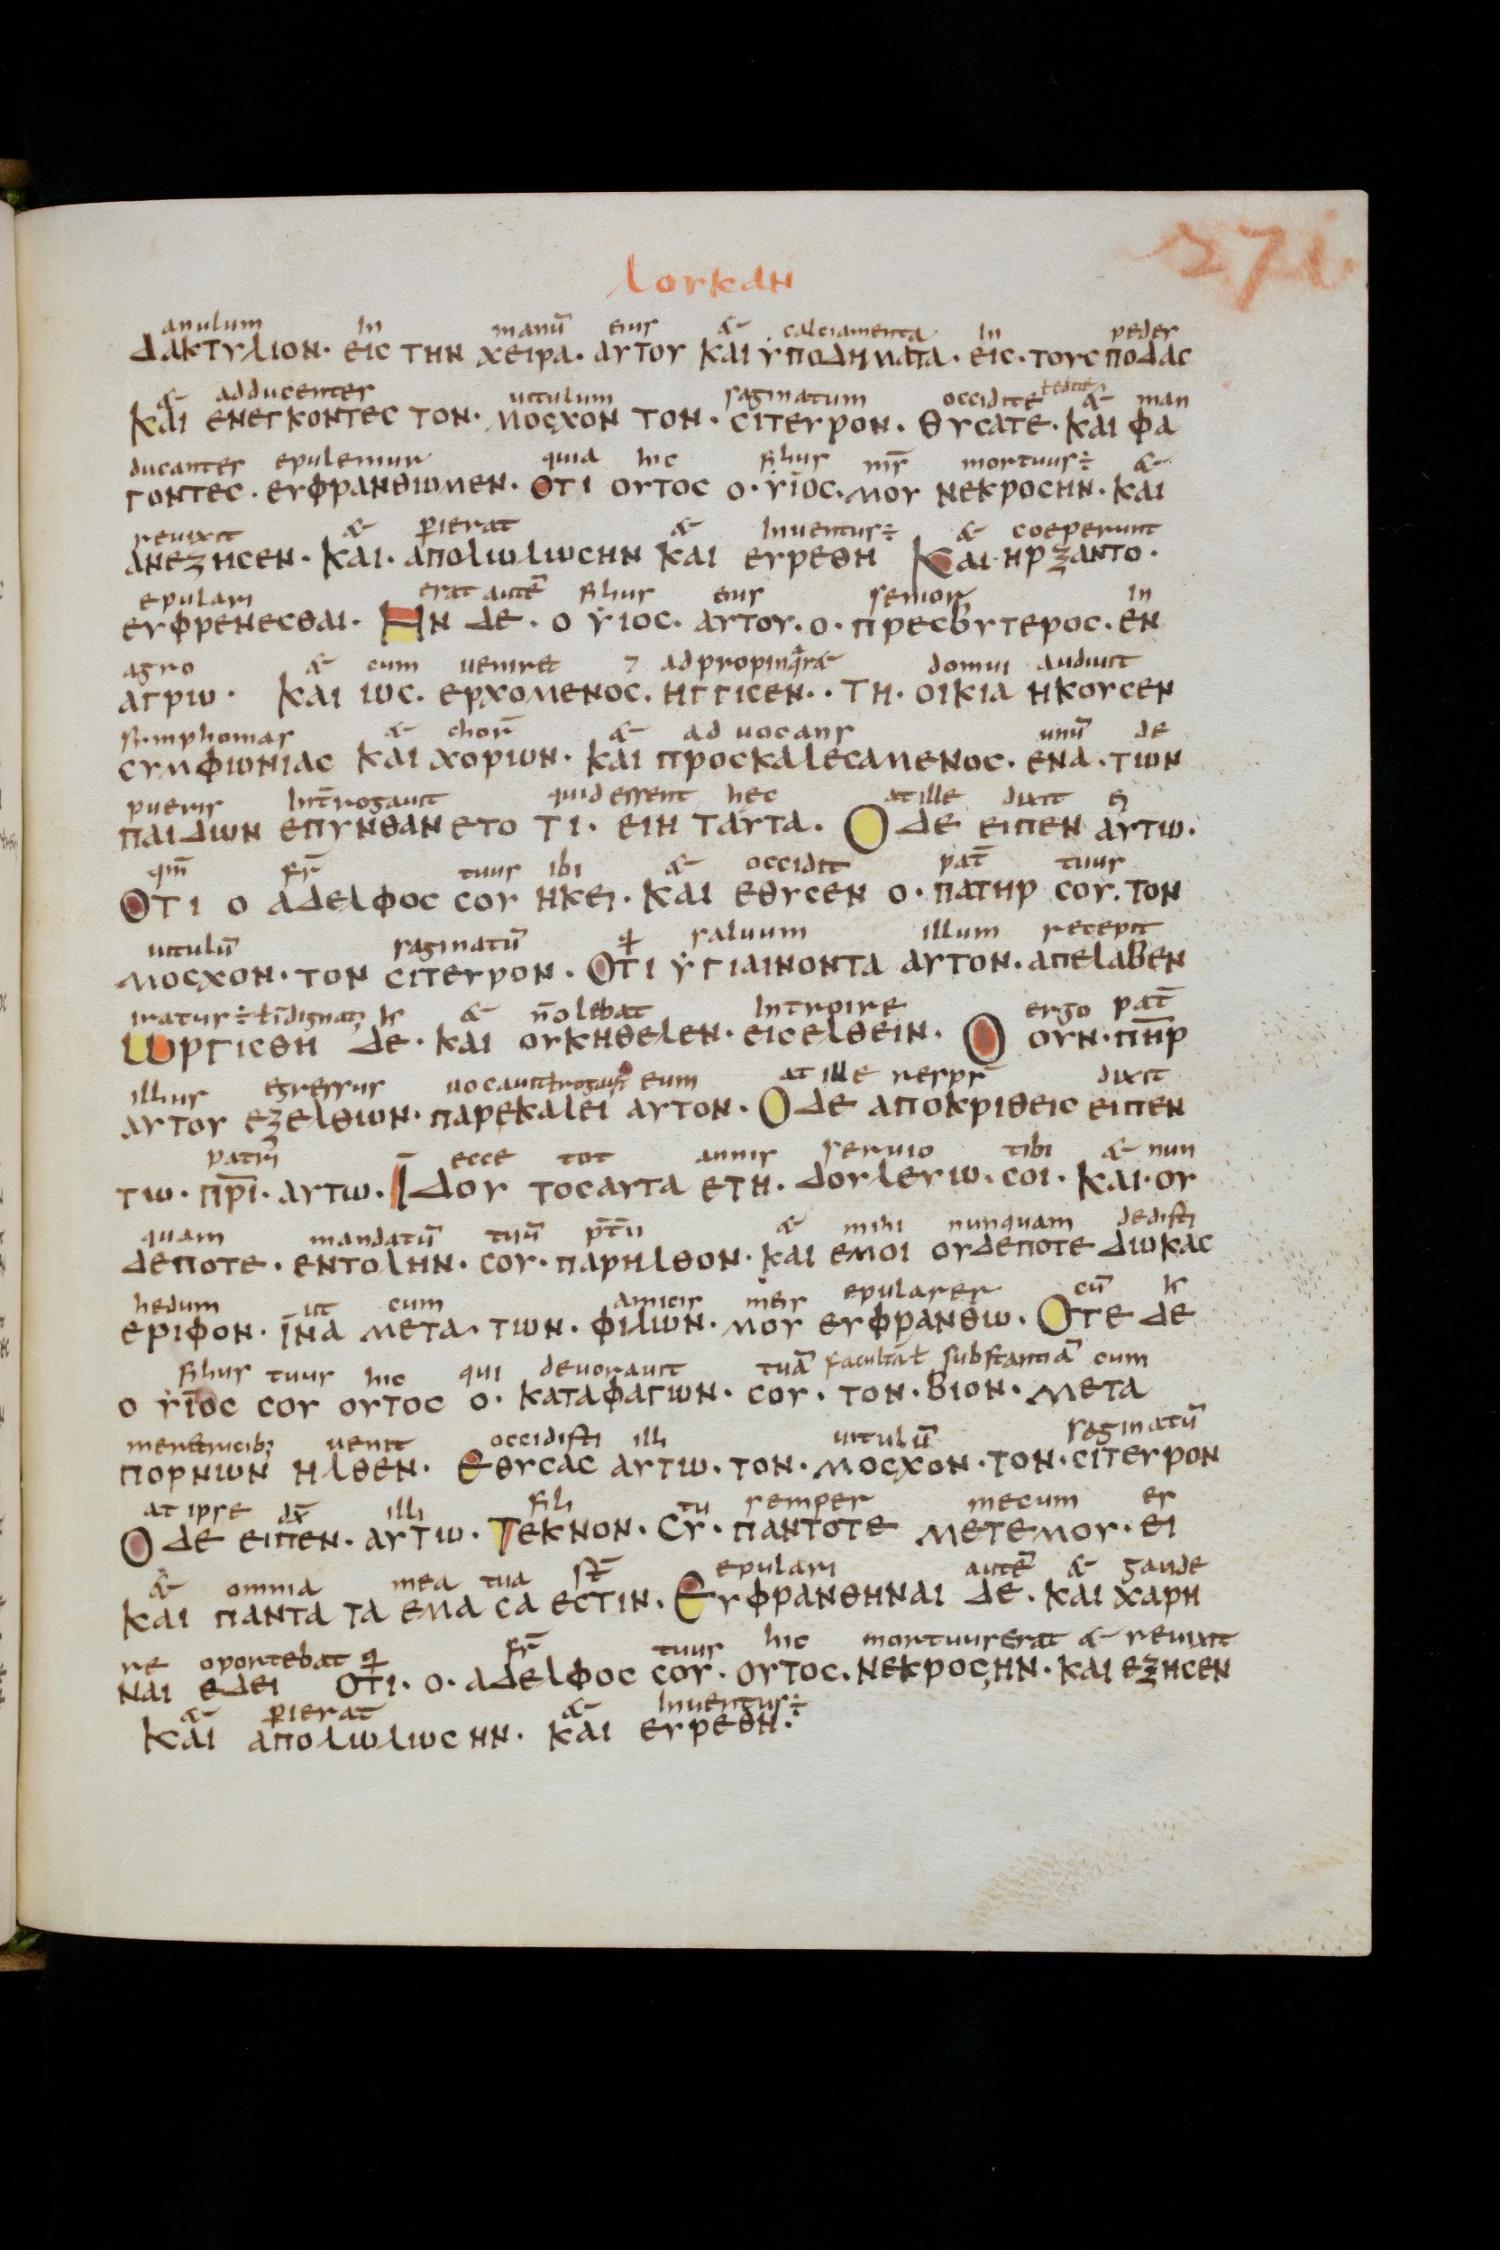 λογκαν
271
anulum in manū eius & calciamenta in pedes
ΔΑΚΤΥΛΙΟΝ· ΕΙC ΤΗΝ ΧΕΙΡΑ· ΑΥΤΟΥ ΚΑΙ ΥΠΟΔΗΜΑΤΑ· ΕΙC· ΤΟΥC ΠΟΔΑC
& adducentes uitulum saginatum occidite & man
ΚΑΙ ΕΝΕΓΚΟΝΤΕC ΤΟΝ· ΜΟCΧΟΝ ΤΟΝ· CΙΤΕΥΡΟΝ· ΘΥCΑΤΕ· ΚΑΙ ΦΑ
ducantes epulemur quia hic filius m̄s mortuus÷ &
ΓΟΝΤΕC· ΕΥΦΡΑΝΘΩΜΕΝ· ΟΤΙ ΟΥΤΟC Ο· ΥΪΟC· ΜΟΥ ΝΕΚΡΟCΗΝ· ΚΑΙ
reuixit & p̄ierat & Inuentus÷ & coeperunt
ΑΝΕΖΗCΕΝ· ΚΑΙ· ΑΠΟΛΩΛΩCΗΝ ΚΑΙ ΕΥΡΕΘΗ ΚΑΙ·ΗΡΞΑΝΤΟ·
epulari erat autē filius eius senior in
ΕΥΦΡΕΝΕCΘΑΙ· ΗΝ ΔΕ· Ο ΥΙΟC· ΑΥΤΟΥ· Ο· ΠΡΕCΒΥΤΕΡΟC· ΕΝ
agro & cum ueniret 7 adpropinqr& domui audiuit
ΑΓΡΩ· ΚΑΙ ΩC· ΕΡΧΟΜΕΝΟC· ΗΓΓΙCΕΝ·· ΤΗ· ΟΙΚΙΑ ΗΚΟΥCΕΝ
simphonias & chor̄ & ad uocans unū de
CΥΜΦΩΝΙΑC ΚΑΙ ΧΟΡΩΝ· ΚΑΙ ΠΡΟCΚΑΛΕCΑΜΕΝΟC· ΕΝΑ· ΤΩΝ
pueris Int̄rogauit quid essent hec at ille dixit ei
ΠΑΙΔΩΝ ΕΠΥΝΘΑΝΕΤΟ ΤΙ· ΕΙΗ ΤΑΥΤΑ· Ο ΔΕ ΕΙΠΕΝ ΑΥΤΩ·
qm̄ fr̄ tuus ibi & occidit pat̄ tuus
ΟΤΙ Ο ΑΔΕΛΦΟC CΟΥ ΗΚΕΙ· ΚΑΙ ΕΘΥCΕΝ Ο· ΠΑΤΗΡ CΟΥ· ΤΟΝ
uitulū saginatū saluum illum recepit
ΜΟCΧΟΝ· ΤΟΝ CΙΤΕΥΡΟΝ· ΟΤΙ ΥΓΙΑΙΝΟΝΤΑ ΑΥΤΟΝ· ΑΠΕΛΑΒΕΝ
iratus÷ & n̄olebat Introire ergo pat̄
ΩΡΓΙCΘΗ ΔΕ· ΚΑΙ ΟΥΚΗΘΕΛΕΝ· ΕΙCΕΛΘΕΙΝ· Ο ΟΥΝ· Π̅Η̅Ρ
illius egressus uocauit eum at ille resps̄ dixit
ΑΥΤΟΥ ΕΞΕΛΘΩΝ· ΠΑΡΕΚΑΛΕΙ ΑΥΤΟΝ· Ο ΔΕ ΑΠΟΚΡΙΘΕΙC ΕΙΠΕΝ
patri ecce tot annis seruio tibi & nun
ΤΩ· Π̅Ρ̅Ι· ΑΥΤΩ· ΙΔΟΥ ΤΟCΑΥΤΑ ΕΤΗ· ΔΟΥΛΕΥΩ· CΟΙ· ΚΑΙ·ΟΥ
quam mandatū tuū & mihi nunquam dedisti
ΔΕΠΟΤΕ· ΕΝΤΟΛΗΝ· CΟΥ· ΠΑΡΗΛΘΟΝ· ΚΑΙ ΕΜΟΙ ΟΥΔΕΠΟΤΕ ΔΩΚΑC
hedum ut cum amicis meis epularer cū
ΕΡΙΦΟΝ· ΪΝΑ ΜΕΤΑ· ΤΩΝ· ΦΙΛΩΝ· ΜΟΥ ΕΥΦΡΑΝΘΩ· ΟΤΕ ΔΕ
filius tuus hic qui deuorauit tuā substantiā cum
Ο ΥΪΟC CΟΥ ΟΥΤΟC Ο· ΚΑΤΑΦΑΓΩΝ· CΟΥ· ΤΟΝ· ΒΙΟΝ· ΜΕΤΑ
uenit occidisti illi uitulū saginatū
ΠΟΡΝΩΝ ΗΛΘΕΝ· ΕΘΥCΑC ΑΥΤΩ· ΤΟΝ· ΜΟCΧΟΝ· ΤΟΝ· CΙΤΕΥΡΟΝ
at ipse dx̄ illi fili tu semper mecum es
Ο ΔΕ ΕΙΠΕΝ· ΑΥΤΩ· ΤΕΚΝΟΝ· CΥ· ΠΑΝΤΟΤΕ ΜΕΤΕΜΟΥ· ΕΙ
& omnia mea tua st̄ epulari autē & gaude
ΚΑΙ ΠΑΝΤΑ ΤΑ ΕΜΑ CΑ ΕCΤΙΝ· ΕΥΦΡΑΝΘΗΝΑΙ ΔΕ· ΚΑΙ ΧΑΡΗ
re oportebat fr̄ tuus hic mortuus erat & reuixit
ΝΑΙ ΕΔΕΙ ΟΤΙ· Ο· ΑΔΕΛΦΟC CΟΥ· ΟΥΤΟC· ΝΕΚΡΟC,ΗΝ· ΚΑΙ ΕΖΗCΕΝ
& p̄ierat & Inuentus÷
ΚΑΙ ΑΠΟΛΩΛΩCΗΝ· ΚΑΙ ΕΥΡΕΘΗ·